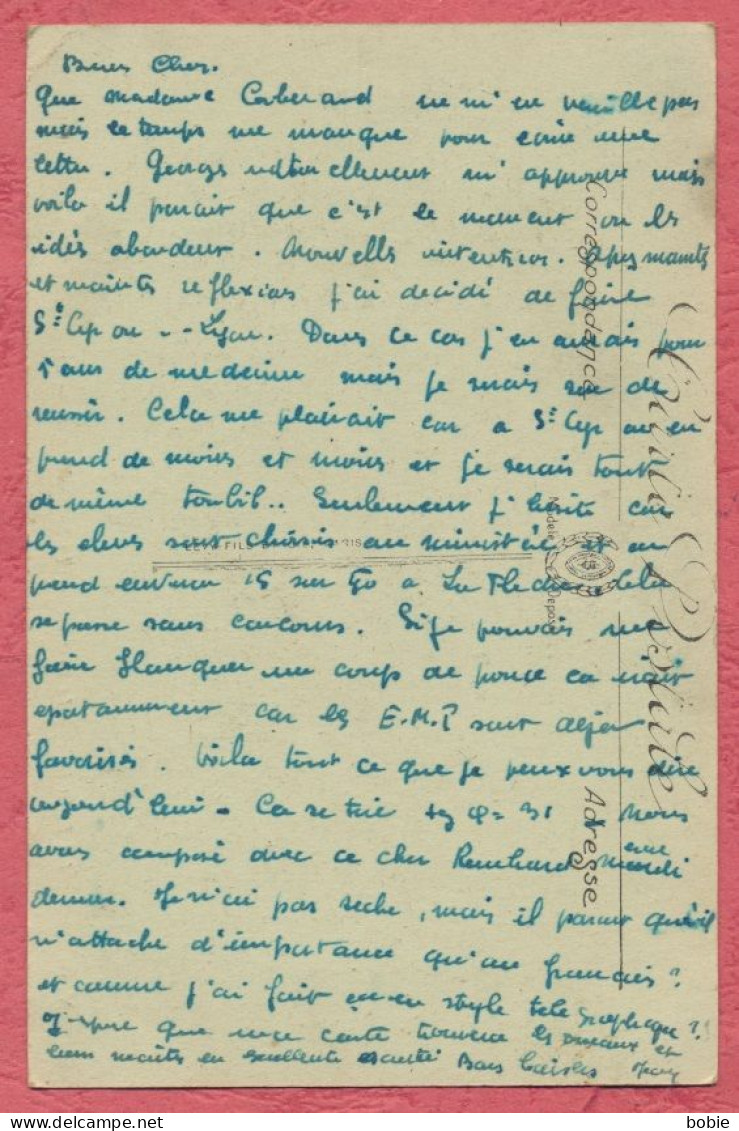 Cher.
Que madame ne m'en veuille pas
mais le temps me manque pour ecrire une
lettre. Georges naturellement m'approuve mais
voila il parait que c'est le moment ou les
idés abondent. Nouvelle intention. Apres maintes
et maintes reflexions j'ai decidé de faire
Sᵗ Cyr ou -- Lyon. Dans ce cas j'en aurais pour
5 ans de medecine mais je serais sur de
reussir. Cela me plairait car a Sᵗ Cyr on en
prend de moins et moins et je serais tout
de même toubib.. Seulement j'hesite car
les eleves sont choisis au ministère et on
prend environ 15 sur 90 a La Fleche. Cela
se passe sans concours. Si je pouvais me
faire flanquer un coup de pouce ca irait
epatamment car les E.M.P sont deja
favorisés. Voila tout ce que je peux vous dire
aujourd'hui - Ca se tire Nous
avons composé avec ce cher mardi
dernier. Je n'ai pas seché, mais il parait qu'il
n'attache d'importance qu'au francais?
et comme j'ai fait ca en style telegraphique?
J'espere que ma carte trouvera les oiseaux et
leurs maitres en excellente santé Bons baisers
Correspondance
Carte Postale
Adresse
Modèle Déposé
LEVY FILS PARIS
bobie